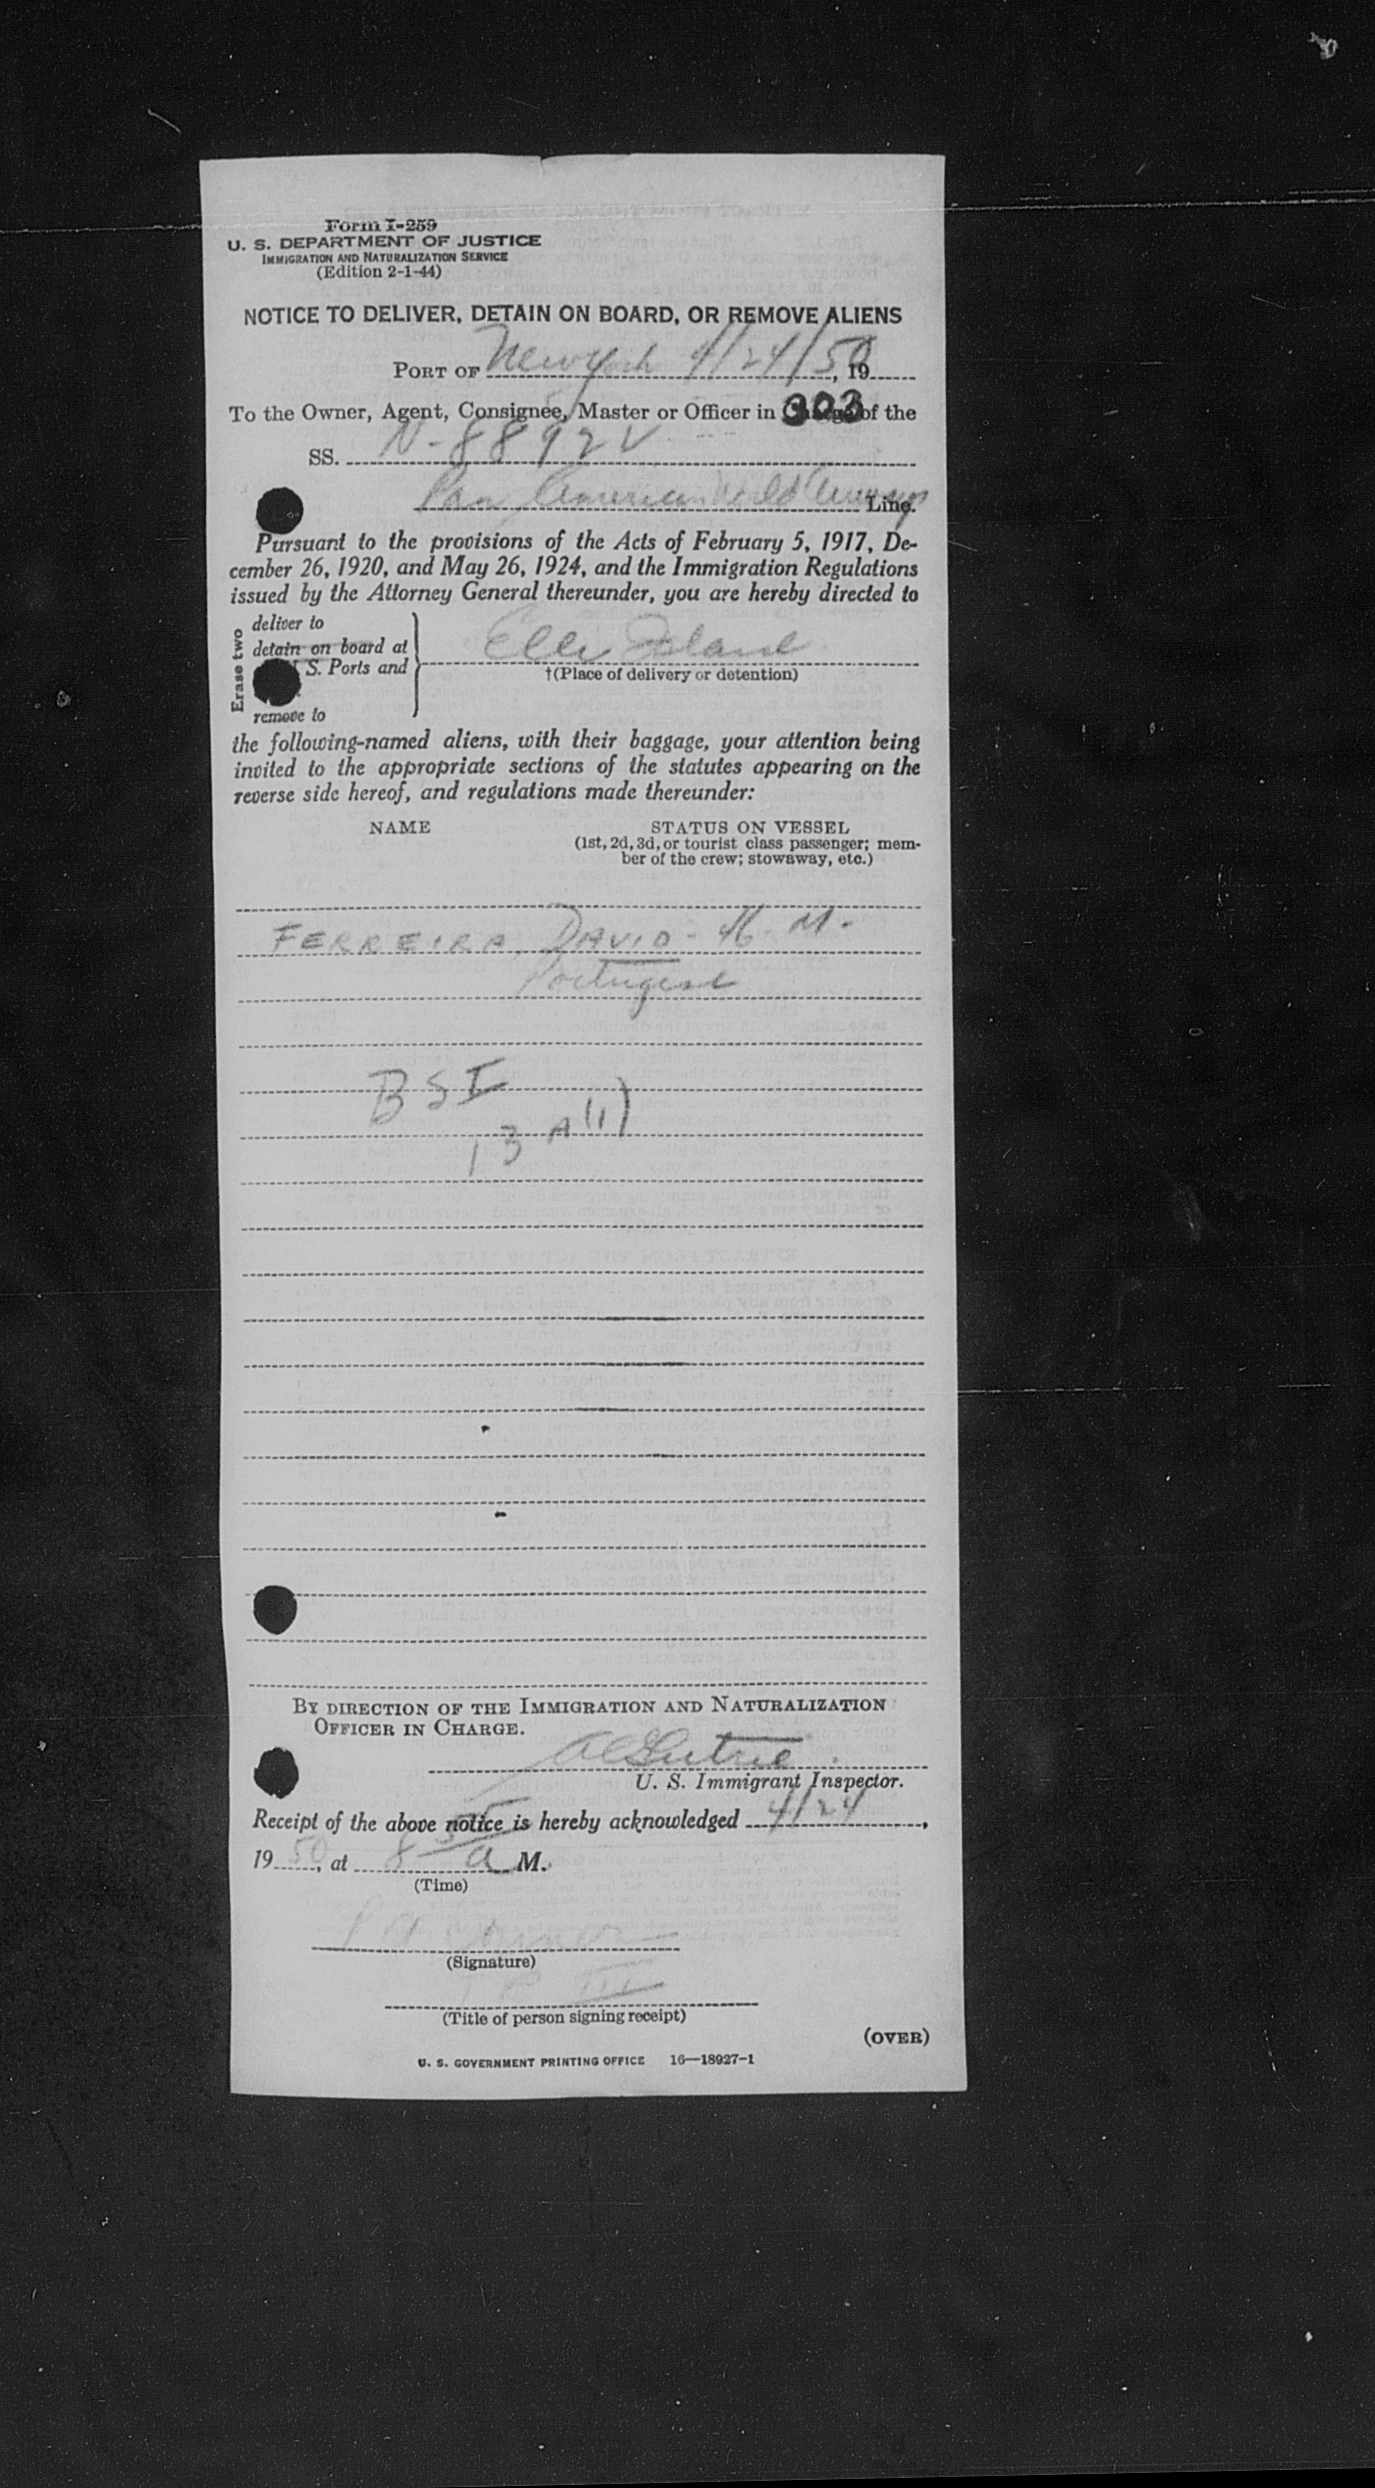 Form I-259
U. S. DEPARTMENT OF JUSTICE
IMMIGRATION AND NATURALIZATION SERVICE
(Edition 2-1-44)
NOTICE TO DELIVER, DETAIN ON BOARD, OR REMOVE ALIENS
PORT OF New York 4/24/50, 19
To the Owner, Agent, Consignee, Master or Officer in Charge of the
303
SS. N-88924
Pan American World Airways Line.
Pursuant to the provisions of the Acts of February 5, 1917, De-
cember 26, 1920, and May 26, 1924, and the Immigration Regulations
issued by the Attorney General thereunder, you are hereby directed to
Erase two
deliver to
detain on board at
S. Ports and
remove to
Ellis Island
†(Place of delivery or detention)
the following-named aliens, with their baggage, your attention being
invited to the appropriate sections of the statutes appearing on the
reverse side hereof, and regulations made thereunder:
NAME STATUS ON VESSEL
(1st, 2d, 3d, or tourist class passenger; mem-
ber of the crew; stowaway, etc.)
FERREIRA, DAVID - 46 - M.
Portugese
BSI
13 A (1)
BY DIRECTION OF THE IMMIGRATION AND NATURALIZATION
OFFICER IN CHARGE.
U. S. Immigrant Inspector.
Receipt of the above notice is hereby acknowledged 4/24,
19 50, at 8 55 a M.
(Time)
(Signature)
(Title of person signing receipt)
(OVER)
U. S. GOVERNMENT PRINTING OFFICE 16—18927-1